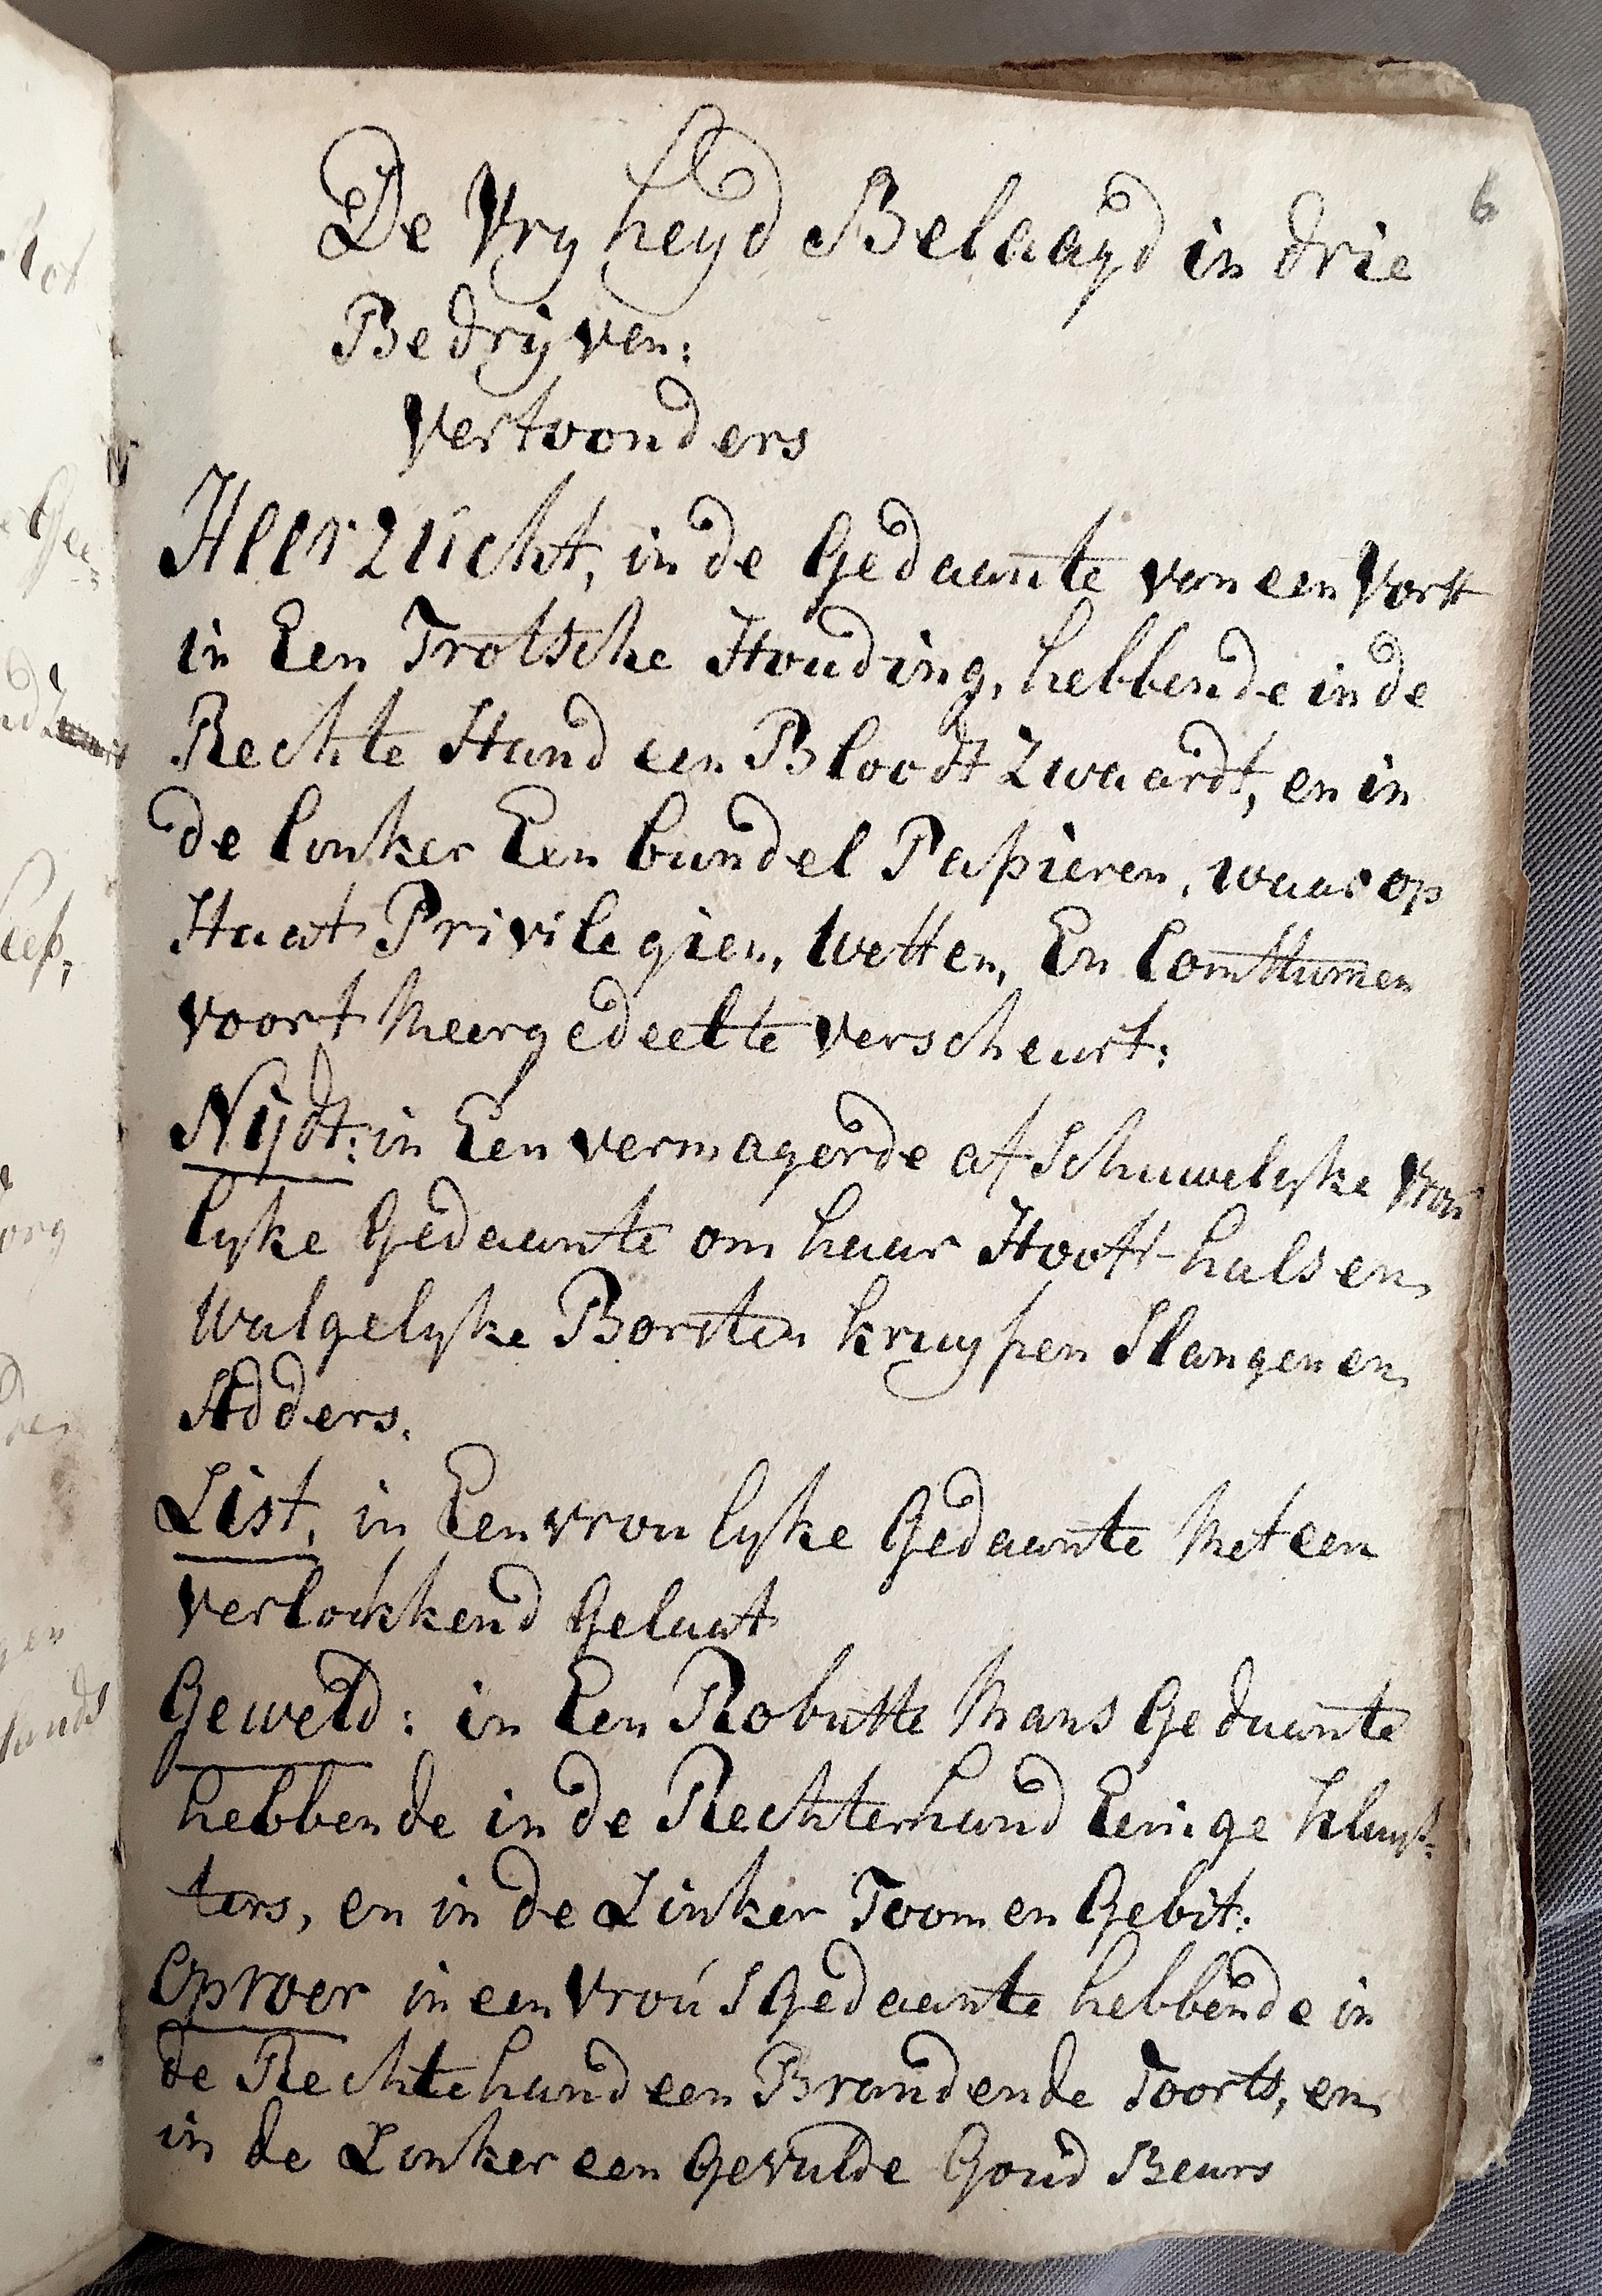 6
De Vryheyd Belaagd in drie
Bedryven:
Vertoonders
Heerzucht, in de Gedaante van een Vorst
in Een Trotsche Houding, hebbende in de
Rechte Hand een Bloodt Zwaardt, en in
de linker Een bundel Papieren, waar op
Staat Privilegien, Wetten, En Costumen
voort Meergedeelte verscheurt:
Nijdt: in Een vermagerde afschuwelyke vrou
lyke Gedaante om haar Hooft hals en
Walgelyke Borsten kruypen Slangen en
Adders.
List, in Een vroulyke Gedaante Met een
verlockkend Gelaat
Geweld: in Een Robuste Mans Gedaante
hebbende in de Rechterhand Eenige kluys-
ters, en in de Linker Toom en Gebit:
Oproer in een Vrou's Gedaante hebbende in
de Rechtehand een Brandende Toorts, en
in de Linker een Gevulde Goud Beurs